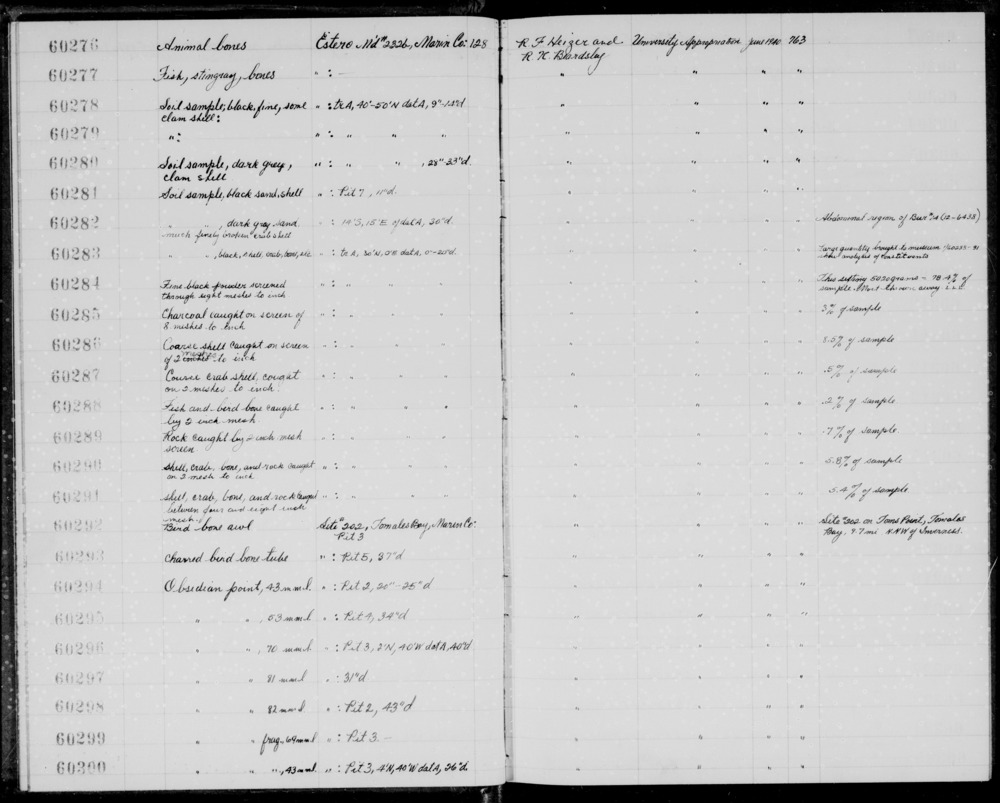 60276 Animal bones Estero M'd # 232b, Marin Co: 128 R. F. Heizer and University Appropriation June 1940 763
R. K. Beardsley
60277 Fish, stingray, bones " : — " " " "
60278 Soil sample, black, fine, some " : tr A, 40'-50'N dat A, 9"-14"d " " " "
clam shell:
60279 " : " : " " " " " " "
60280 Soil sample, dark grey, " : " " , 28"-33"d. " " " "
clam shell
60281 Soil sample, black sand, shell " : Pit 7, 11"d. " " " "
60282 " " , dark grey sand " : 14'S, 15'E of dat A, 30"d. " " " " Abdominal region of Bur. (12-6438)
much finely broken crab shell
60283 " " , black, shell, crab, bone, etc " : tr A, 30'N, 0'E dat A, 0"-20"d. " " " " Large quantity brought to museum
analysis of constituents
60284 Fine black powder screened " : " " " " " " " This sifting 5030 grams = 78.4% of
through eight meshes to inch sample. Most thrown away
60285 Charcoal caught on screen of " : " " " " " " " 3% of sample
8 meshes to inch
60286 Coarse shell caught on screen " : " " " " " " " % of sample
of 2 meshes to inch
60287 Course crab shell, caught " : " " " " " " " .5% of sample
on 2 meshes to inch
60288 Fish and bird bone caught " : " " " " " " " .2% of sample
by 2 inch mesh
60289 Rock caught by 2 inch mesh " : " " " " " " " .7% of sample
screen
60290 Shell, crab, bone, and rock caught " : " " " " " " " 5.8% of sample
on mesh to inch
60291 Shell, crab, bone, and rock caught " : " " " " " " " 5.4% of sample
between four and eight inch
mesh
60292 Bird bone awl Site # 202, Tomales Bay, Marin Co: " " " " Site #202 on Toms Point, Tomales
Pit 3 Bay. 9.7 mi NNW of Inverness.
60293 Charred bird bone tube " : Pit 5, 37"d " " " "
60294 Obsidian point, 43 mm l. " : Pit 2, 20"-25"d " " " "
60295 " " , 53 mm l " : Pit 4, 34"d " " " "
60296 " " , 70 mm l " : Pit 3, 2'N, 40'W dat A, 40"d " " " "
60297 " " 81 mm l " : 31"d " " " "
60298 " " 82 mm l " : Pit 2, 43"d " " " "
60299 " " frag., 69 mm l " : Pit 3 — " " " "
60300 " " " , 43 mm l. " : Pit 3, 4'N, 40'W dat A, 26"d. " " " "